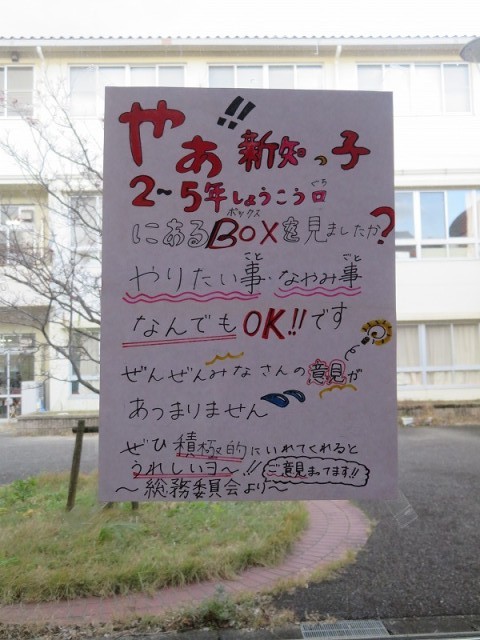 やあ!! 新知っ子
2~5年しょうこう口
にあるBOXを見ましたか?
やりたい事・なやみ事
なんでもOK!!です
ぜんぜんみなさんの意見が
あつまりません
ぜひ積極的にいれてくれると
うれしいヨ〜!! ご意見まってます!!
〜総務委員会より〜